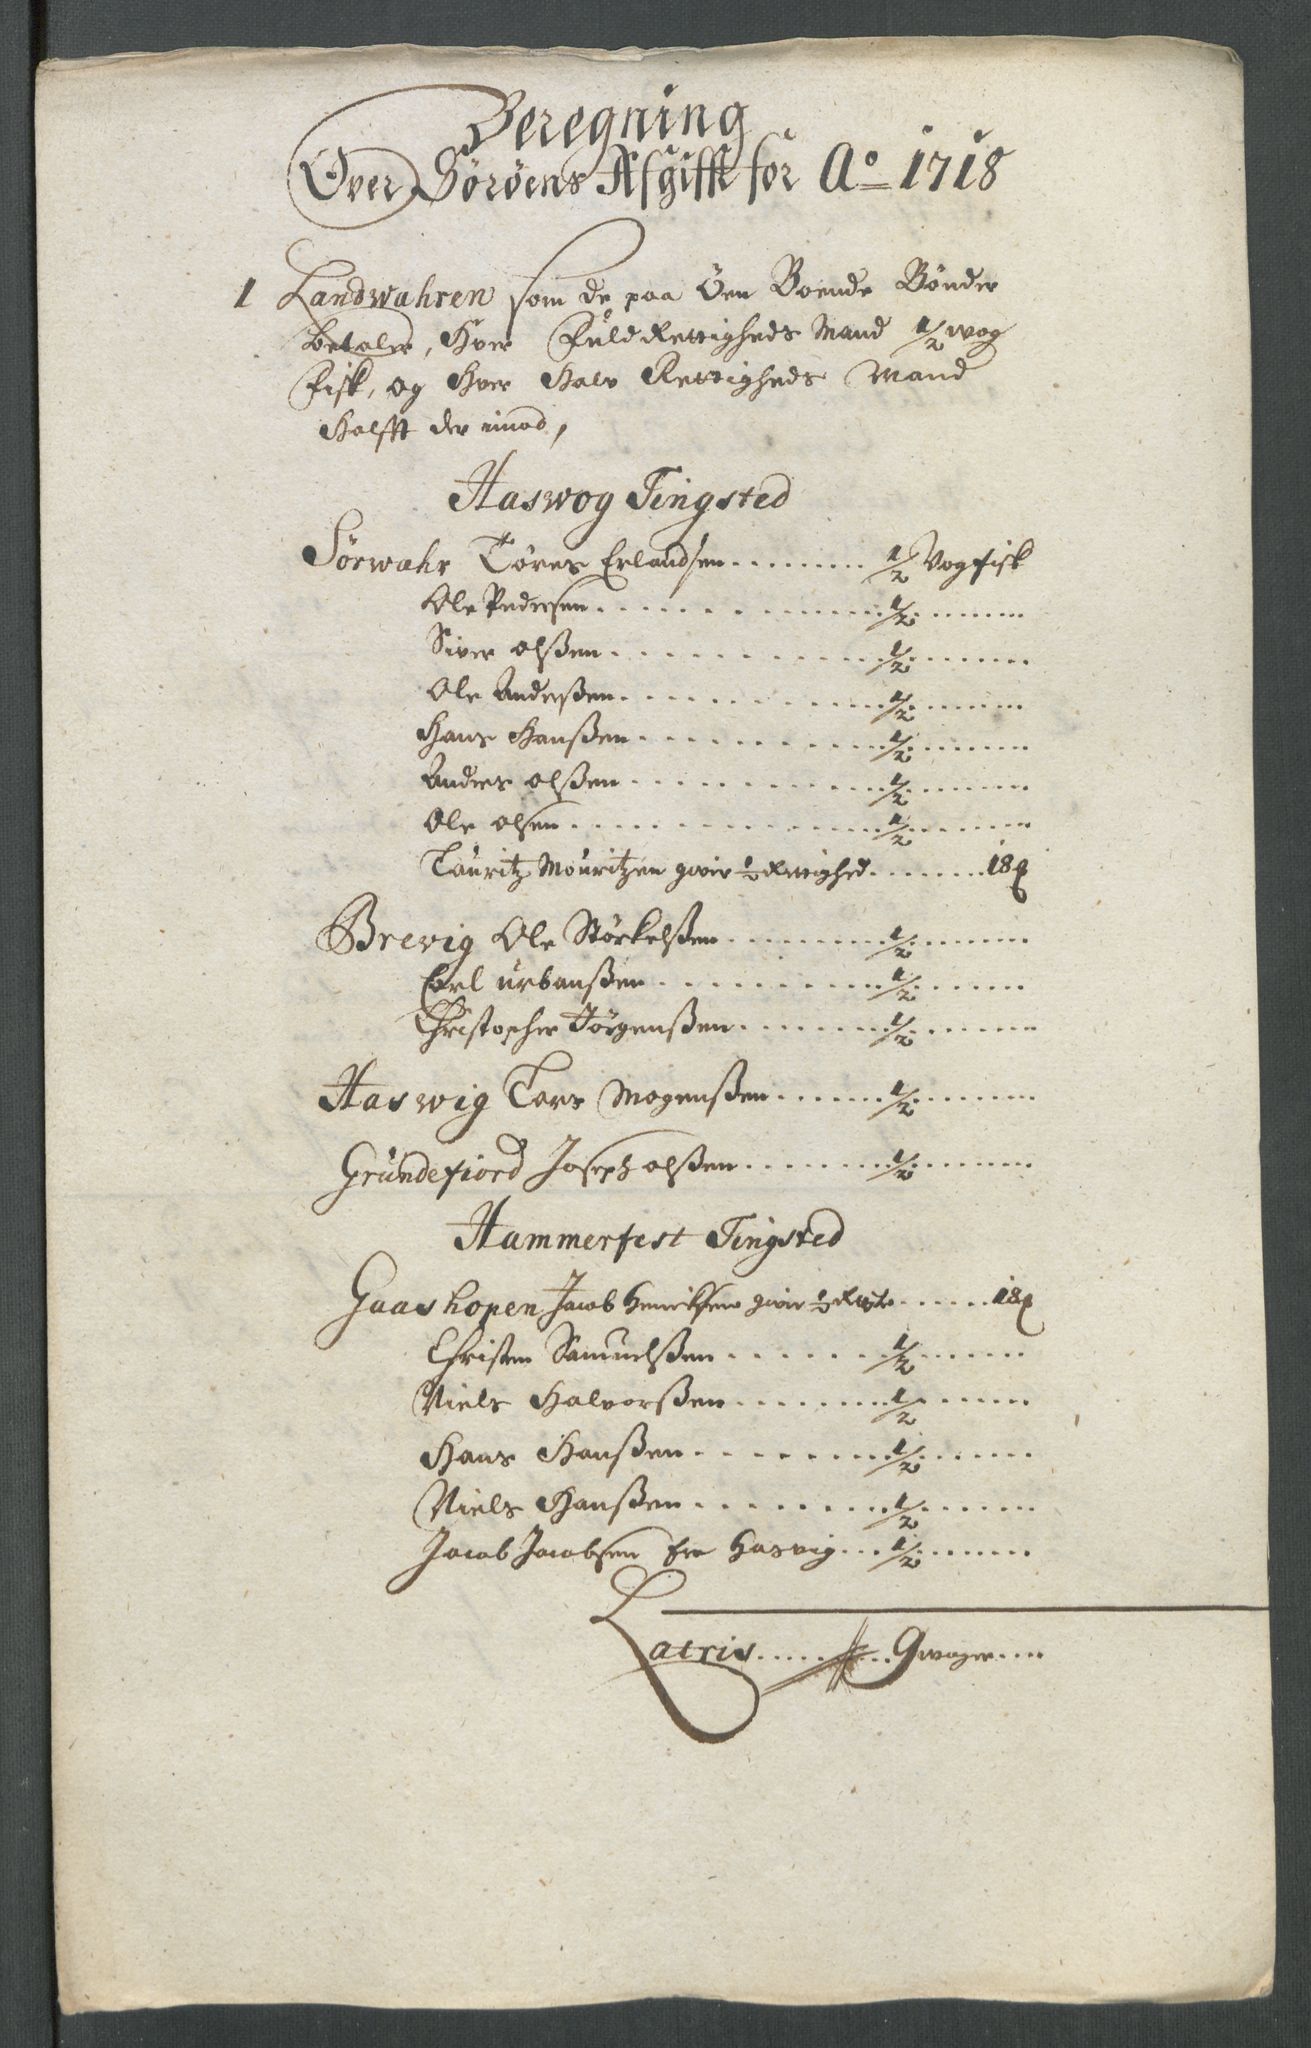 Beregning
Over Sørøens Afgifft for Ao 1718
1 Landwahren som de paa Öen Boende Bønder
betaler, Hver Fuld Rettigheds Mand 1/2 wog
Fisk, og Hver Halv Rettigheds Mand
Halfft der imod,
Haswog Tingsted
Sörwahr Tøres Erlandsen ........ 1/2 Vog fisk
Ole Pedersen ........ 1/2 ........
Siver olßen ........ 1/2 ........
Ole Anderßen ........ 1/2 ........
Hans Hanßen ........ 1/2 ........
Anders olßen ........ 1/2 ........
Ole olsen ........ 1/2 ........
Lauritz Mouritzen giver 1/2 Rettighed ........ 18
Brevig Ole Störkelßen ........ 1/2 ........
Carl urbanßen ........ 1/2 ........
Christopher Jörgenßen ........ 1/2 ........
Haswig Lars Mogenßen ........ 1/2 ........
Gründefiord Joseph olßen ........ 1/2 ........
Hammerfest Tingsted
Gaashopen Jacob Henrichsen giver 1/2 ........ 18
Christen Samuelßen ........ 1/2 ........
Niels Halvorßen ........ 1/2 ........
Hans Hanßen ........ 1/2 ........
Niels Hanßen ........ 1/2 ........
Jacob Jacobsen fra Hasvig ... 1/2 ........
Latris ........ 9 woger ....